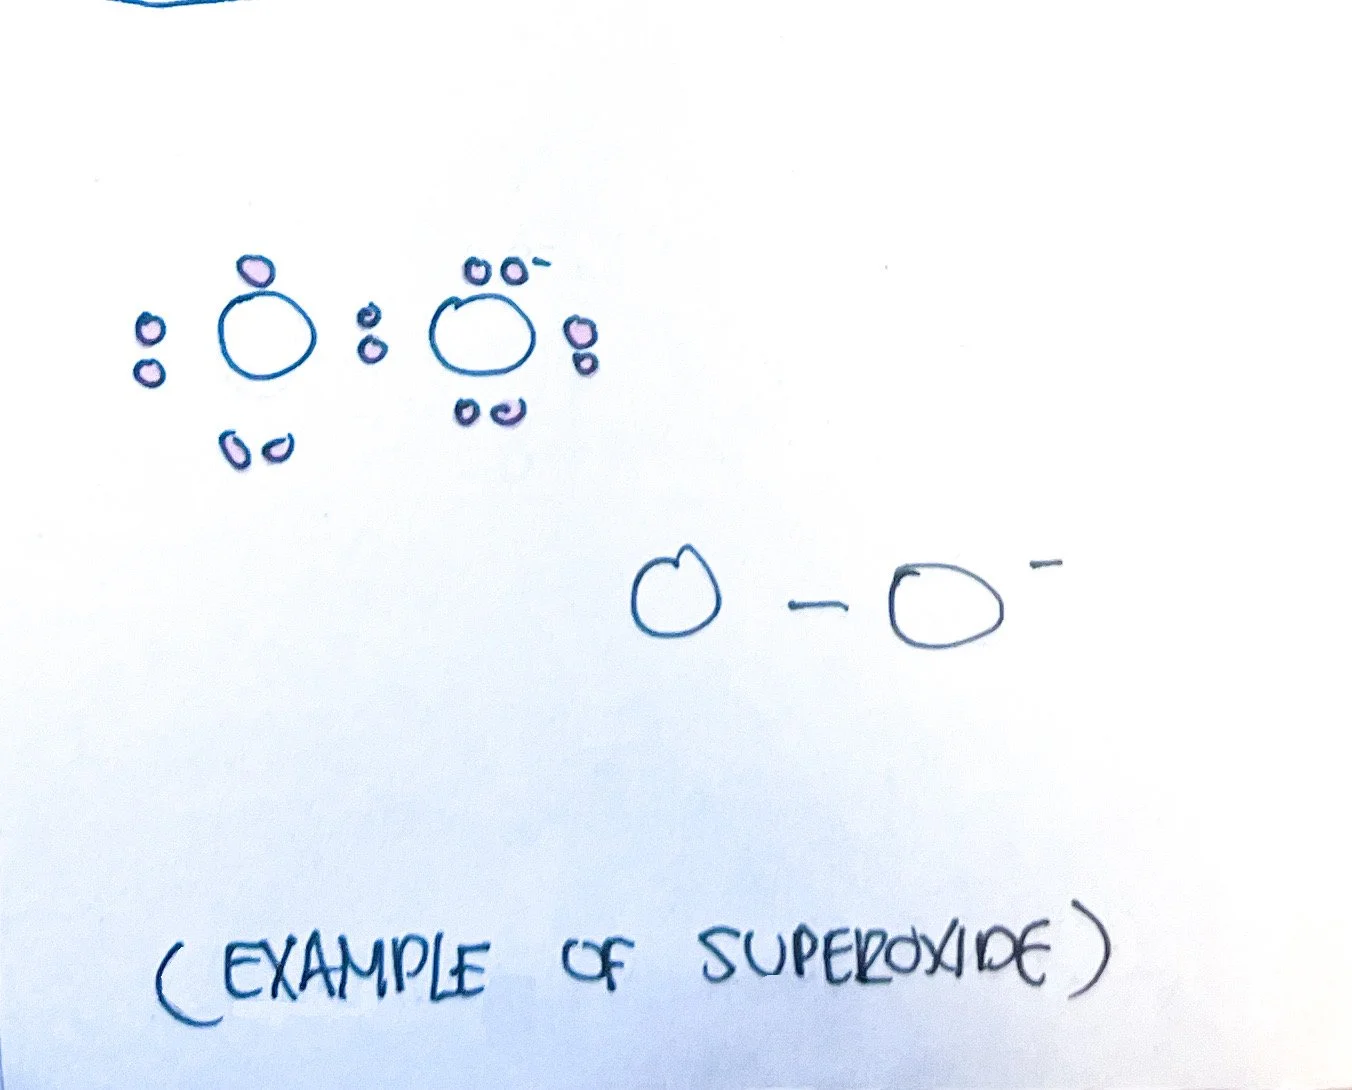 O O⁻
O – O⁻
(EXAMPLE OF SUPEROXIDE)